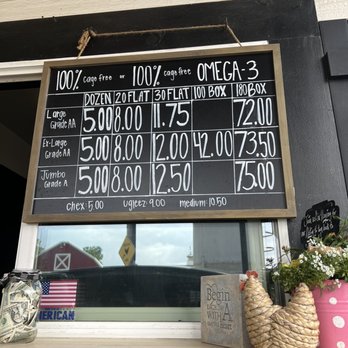 100% cage free or 100% cage free OMEGA-3
DOZEN 20 FLAT 30 FLAT 100 BOX 180 BOX
Large Grade AA 5.00 8.00 11.75 72.00
Ex-Large Grade AA 5.00 8.00 12.00 42.00 73.50
Jumbo Grade A 5.00 8.00 12.50 75.00
Chex: 5.00 Ugleez: 9.00 medium: 10.50
Begin
with